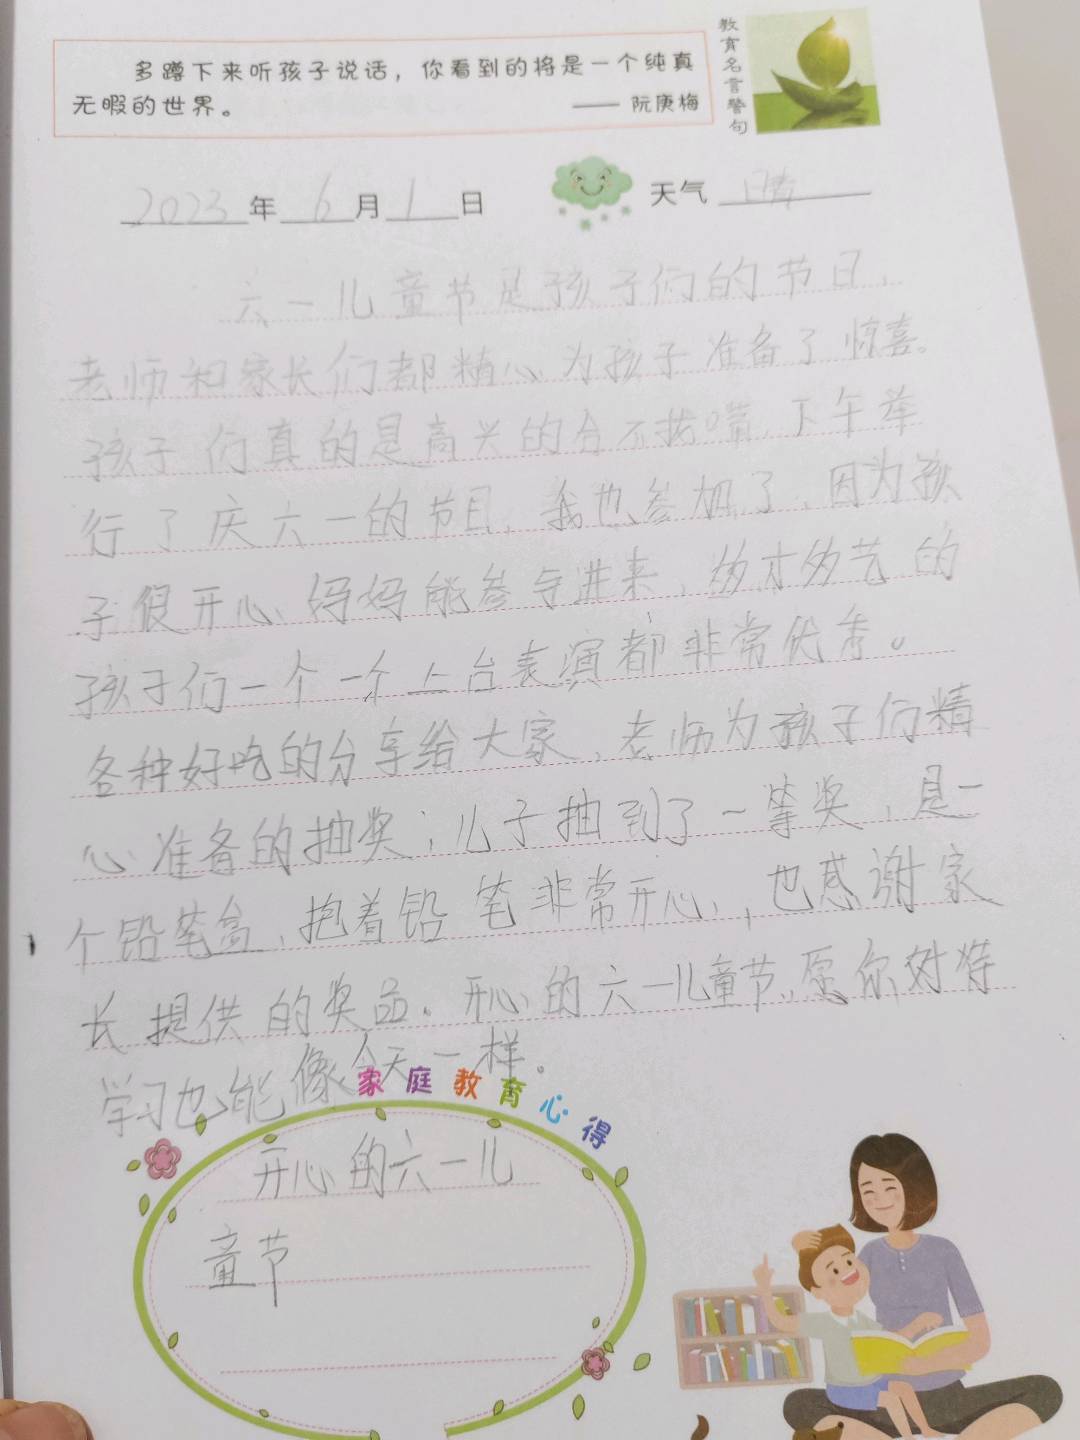 多蹲下来听孩子说话，你看到的将是一个纯真
无暇的世界。 —— 阮庚梅
教育名言警句
2023年6月1日 天气 晴
六一儿童节是孩子们的节日，
老师和家长们都精心为孩子准备了惊喜。
孩子们真的是高兴的合不拢嘴，下午举
行了庆六一的节目，我也参加了，因为孩
子很开心妈妈能参与进来，多才多艺的
孩子们一个一个上台表演都非常优秀。
各种好吃的分享给大家，老师为孩子们精
心准备的抽奖；儿子抽到了一等奖，是一
个铅笔盒，抱着铅笔非常开心，也感谢家
长提供的奖品。开心的六一儿童节，愿你对待
学习也能像今天一样。
家庭教育心得
开心的六一儿
童节